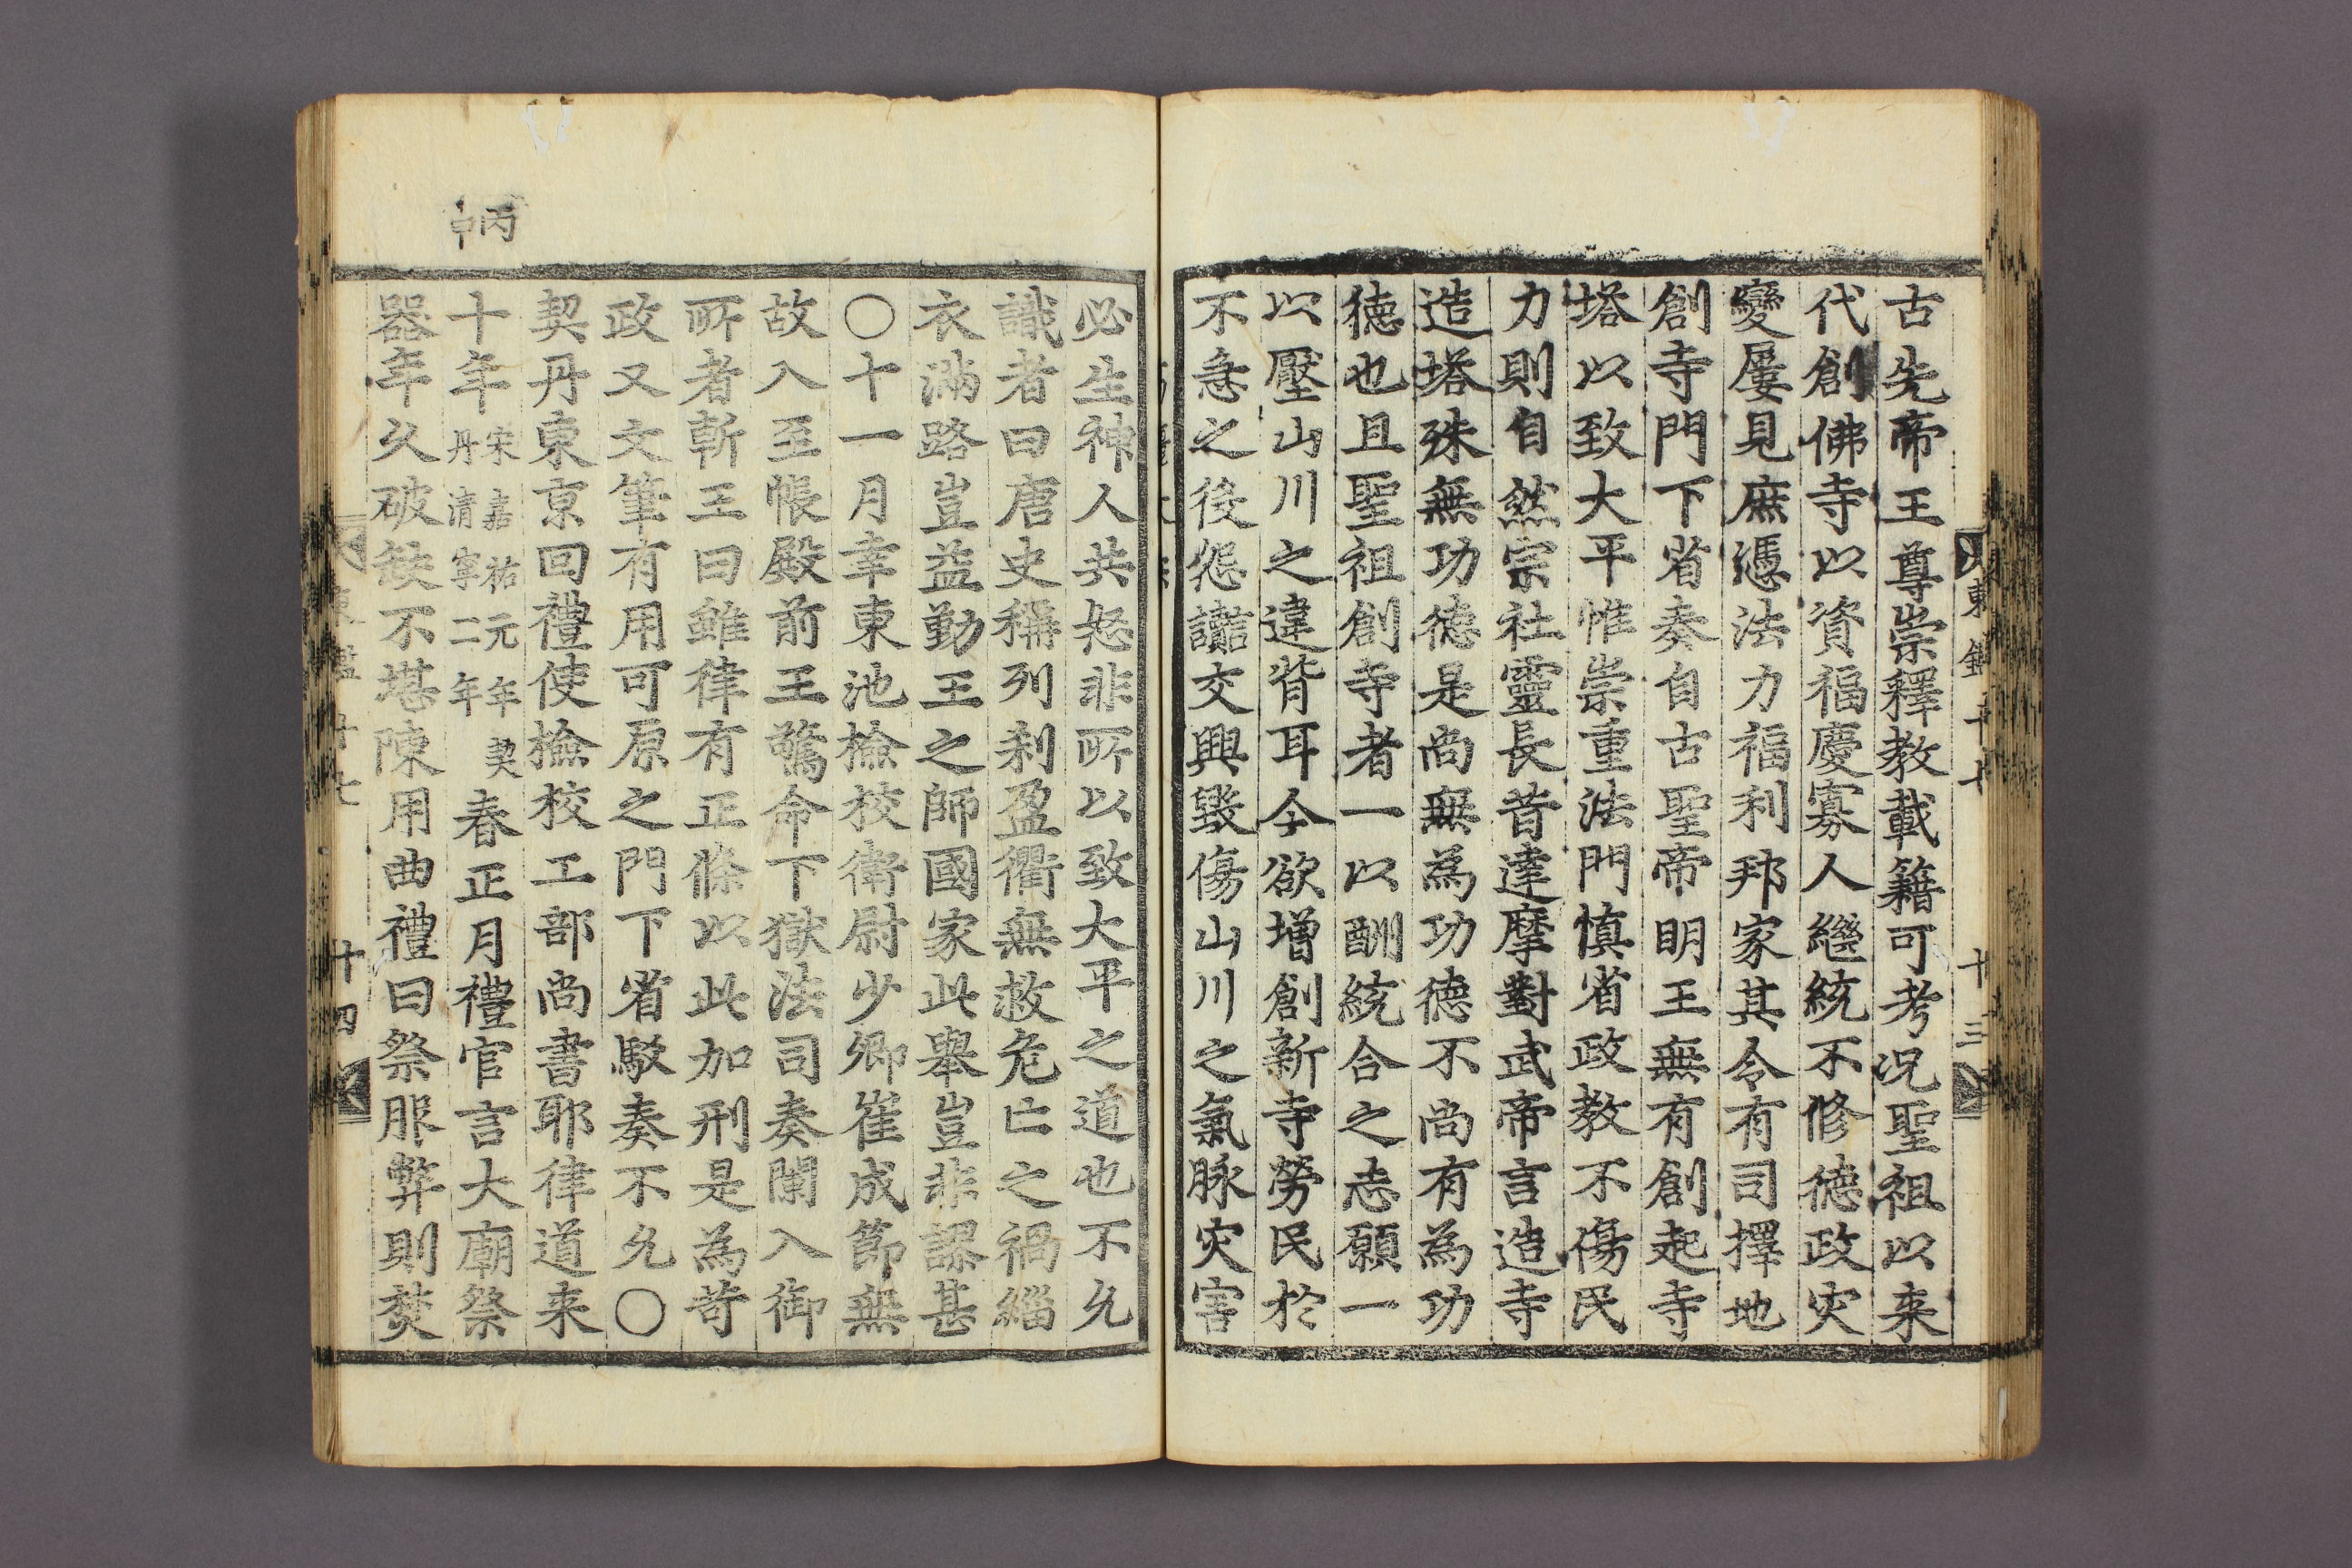 古先帝王尊崇釋教載籍可考况聖祖以来
代創佛寺以資福慶寡人継統不修德政灾
變屢見庶憑法力福利邦家其令有司擇地
創寺門下省奏自古聖帝明王無有創起寺
塔以致大平惟崇重法門慎省政教不傷民
力則自然宗社靈長昔達摩對武帝言造寺
造塔殊無功德是尚無為功德不尚有為功
徳也且聖祖創寺者一以酬統合之志願一
以壓山川之違背耳今欲增創新寺勞民於
不急之後怨讟交興毀傷山川之氣脉灾害
東鑑 十七
十三
必生神人共怒非所以致大平之道也不允
識者曰唐史稱列刹盈衢無救危亡之禍緇
衣滿路豈益勤王之師國家此舉豈非謬甚
〇十一月幸東池檢校衛尉少卿崔成節無
故入至帳殿前王驚命下獄法司奏闌入御
所者斬王曰雖律有正條以此加刑是為苛
政又文筆有用可原之門下省駁奏不允〇
契丹東京回禮使檢校工部尚書耶律道来
丙申
十年宋嘉祐元年契丹清寧二年春正月禮官言大廟祭
器年久破缺不堪陳用曲禮曰祭服弊則焚
東鑑 十七
十四